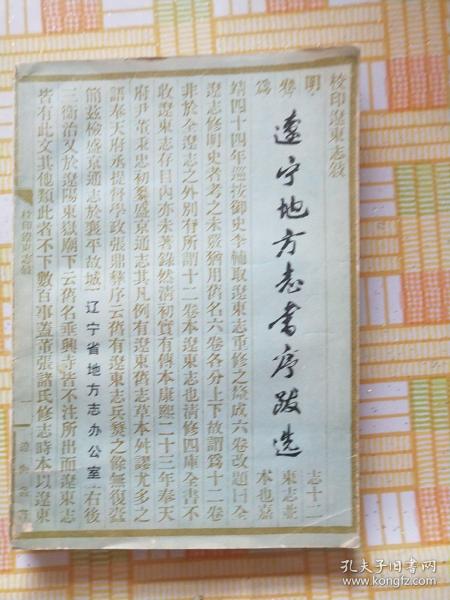 校印遼東志敍
明
志十二
卷
東志並
爲
本也嘉
遼宁地方志書序跋选
靖四十四年巡按御史李輔取遼東志重修之釐成六卷改題曰全
遼志修明史者考之未覈猶用舊名六卷各分上下故謂爲十二卷
非於全遼志之外別有所謂十二卷本遼東志也清修四庫全書不
收遼東志存目內亦未著錄然清初實有傳本康熙二十三年奉天
府尹董秉忠初纂盛京通志其凡例有遼東舊志草本舛謬尤多之
語奉天府丞提督學政張鼎彝序云舊有遼東志兵燹之餘無復蓋
簡茲檢盛京通志於襄平故城
辽宁省地方志办公室
右後
三衛治又於遼陽東嶽廟下云舊名垂興寺皆不注所出而遼東志
皆有此文其他類此者不下數百事蓋董張諸氏修志時本以遼東
校印遼東志敍
一
遼海叢書
孔夫子旧书网
www.kongfz.com